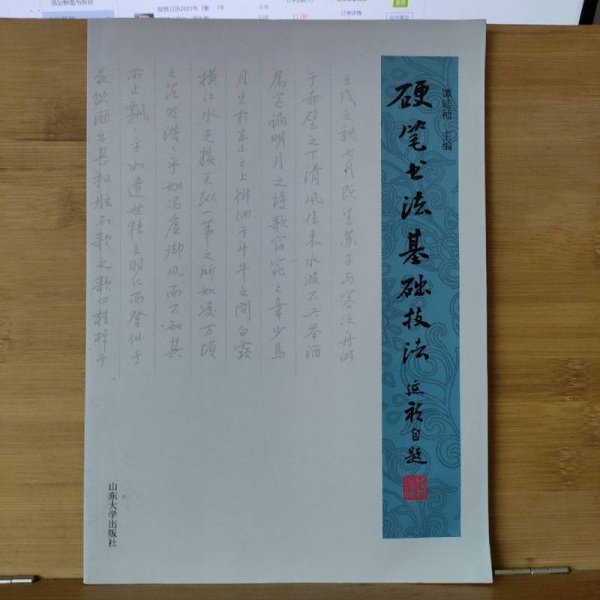 11.00
谭延祯 主编
硬笔书法基础技法
延祯自题
壬戌之秋七月既望苏子与客泛舟游
于赤壁之下清风徐来水波不兴举酒
属客诵明月之诗歌窈窕之章少焉
月出于东山之上徘徊于斗牛之间白露
横江水光接天纵一苇之所如凌万顷
之茫然浩〻乎如冯虚御风而不知其
所止飘〻乎如遗世独立羽化而登仙于
是饮酒乐甚扣舷而歌之歌曰桂棹兮
山东大学出版社